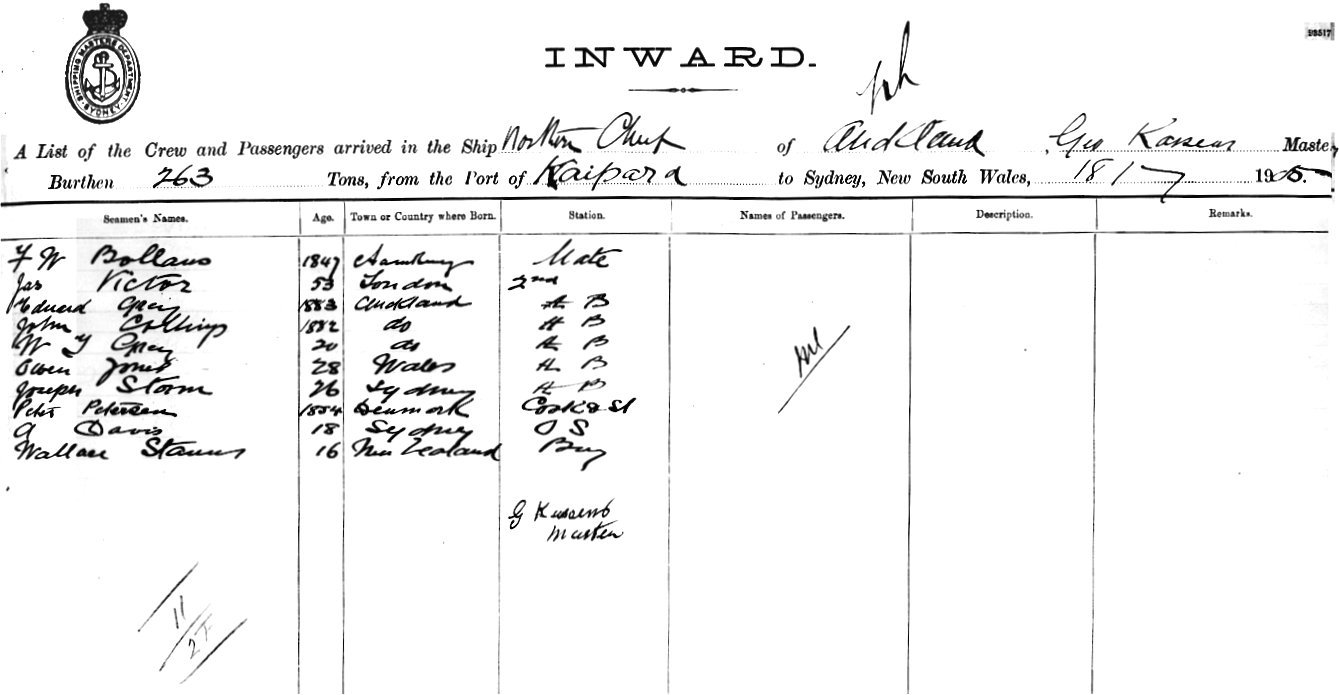 SHIPPING MASTERS DEPARTMENT SYDNEY
93517
INWARD.
A List of the Crew and Passengers arrived in the Ship Northern Chief of Auckland Geo Master,
Burthen 263 Tons, from the Port of Kaipara to Sydney, New South Wales, 18 / 7 1905.
Seamen's Names. Age. Town or Country where Born. Station. Names of Passengers. Description. Remarks.
F W 1847 Hamburg Mate
Jas Victor 53 London 2nd
Edward Grey 1883 Auckland A B
John Collings 1882 do A B
W Grey 20 do A B
Owen Jones 28 Wales A B
Joseph Storm 26 Sydney A B
Peter Petersen 1854 Denmark Cook & St
A Davis 18 Sydney O S
Wallace 16 New Zealand Boy
Nil
G
Master
11